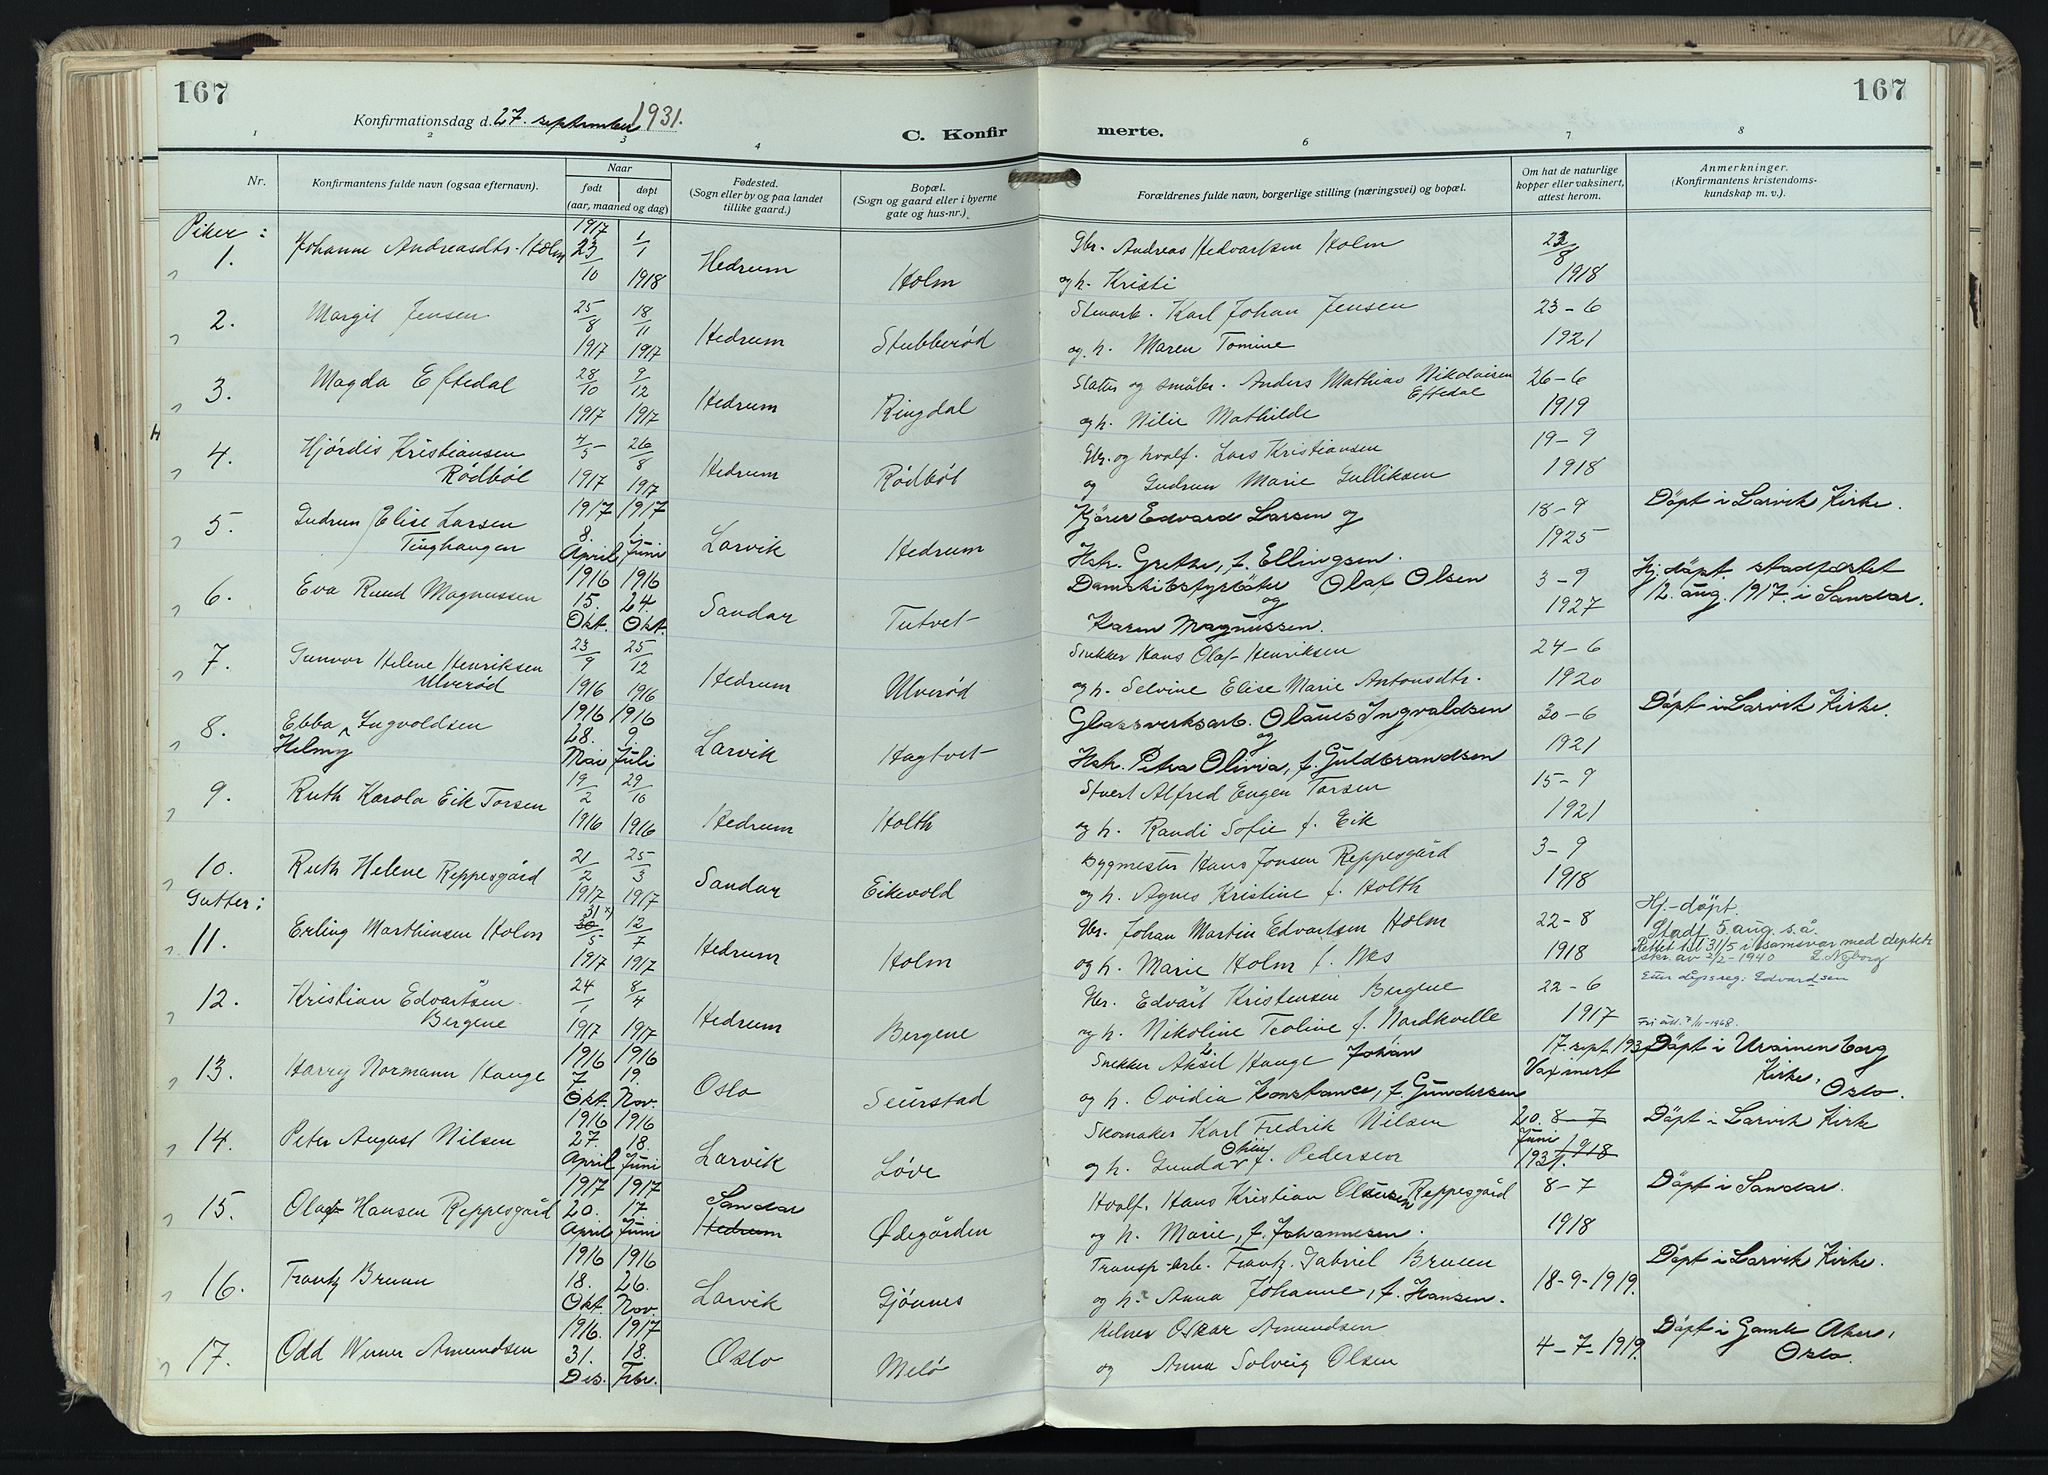 167
167
Konfirmationsdag d. 27. september 1931.
C. Konfir merte.
1 2 3 4 6 7 8
Nr.
Konfirmantens fulde navn (ogsaa efternavn).
Naar
født
døpt
(aar, maaned og dag)
Fødested.
(Sogn eller by og paa landet
tillike gaard.)
Bopæl.
(Sogn og gaard eller i byerne
gate og hus-nr.)
Forældrenes fulde navn, borgerlige stilling (næringsvei) og bopæl.
Om hat de naturlige
kopper eller vaksinert,
attest herom.
Anmerkninger.
(Konfirmantens kristendoms-
kundskap m. v.).
Piker:
1. Johanne Andreasdtr. Holm 1917 23/10 1/1 1918 Hedrum Holm
Gbr. Andreas Hedvartsen Holm
og h. Kristi
22/8 1918
2. Margit Jensen 25/8 1917 18/11 1917 Hedrum Stubberød
Stenarb. Karl Johan Jensen
og h. Maren Tomine
23-6 1921
3. Magda Eftedal 28/10 1917 9/12 1917 Hedrum Ringdal
Slakter og småbr. Anders Mathias Nikolaisen
Eftedal
og h. Nilie Mathilde
26-6 1919
H
4. Hjørdis Kristiansen
Rødbøl 4/5 1917 26/8 1917 Hedrum Rødbøl
Gbr. og hvalf. Lars Kristiansen
og Gudrun Marie Gulliksen
19-9 1918
5. Gudrun Elise Larsen
Tinghaugen 1917 8. April 1917 1. Juni Larvik Hedrum
Kjører Edvard Larsen og
Hstr. Grethe, f. Ellingsen.
18-9 1925
Døpt i Larvik Kirke.
6. Eva Ruud Magnussen 1916 15. Okt. 1916 24. Okt. Sandar Tutvet
Damskibsfyrbøter Olaf Olsen
og
Karen Magnussen.
3-9 1927
Hj. døpt. stadfæstet
12. aug. 1917. i Sandar.
7. Gunvor Helene Henriksen
Ulverød 23/9 1916 25/12 1916 Hedrum Ulverød
Snekker Hans Olaf Henriksen
og h. Selvine Elise Marie Antonsdtr.
24-6 1920
8. Ebba Ingvoldsen
Helmy 1916 28. Mai 1916 9. Juli Larvik Hagtvet
Glassverksarb. Olaves Ingvaldsen
og
Hstr. Petra Olivia, f. Guldbrandsen
30-6 1921
Døpt i Larvik Kirke.
9. Ruth Karola Eik Torsen 19/2 1916 29/10 1916 Hedrum Holth
Stuert Alfred Eugen Torsen
og h. Randi Sofie f. Eik
15-9 1921
10. Ruth Helene Reppesgård 21/2 1917 25/3 1917 Sandar Eikevold
Bygmester Hans Jonsen Reppesgård
og h. Agnes Kristine f. Holth
3-9 1918
Gutter:
11. Erling Marthinsen Holm 31 x) 30/5 1917 12/7 1917 Hedrum Holm
Gbr. Johan Martin Edvartsen Holm
og h. Marie Holm f. Nes
22-8 1918
Hj.-døpt.
Stadf. 5. aug. s.å.
Rettet til 31/5 i samsvar med deptets
skr. av 2/2-1940 L. Nyborg
12. Kristian Edvartsen
Bergene 24/1 1917 8/4 1917 Hedrum Bergene
Gbr. Edvart Kristensen Bergene
og h. Nikoline Teoline f. Nordkvelle
22-6 1917
Etter dåpsreg: Edvardsen
13. Harry Normann Hauge 1916 7. Okt. 1916 19. Nov. Oslo Seierstad
Snekker Aksil Hauge Johan
og h. Ovidia Konstance, f. Gundersen
17. sept. 193
Vaxinert
Døpt i Uranienborg
Kirke,
Oslo.
14. Peter August Nilsen 1916 27. April 1916 18. Juni Larvik Løve
Skomaker Karl Fredrik Nilsen
og h. Gunda f. Pedersen
20. 8-7
Juni 1918
1931.
Døpt i Larvik Kirke
15. Olaf Hansen Reppesgård 1917 20. April 1917 17 Juni Sandar
Hedrum Ødegården
Hvalf. Hans Kristian Olausen Reppesgård
og h. Marie, f. Johannesen.
8-7 1918
Døpt i Sandar.
16. Frantz Bruun 1916 18. Okt. 1916 26. Nov. Larvik Gjønnes
Transp-arb. Frantz Gabriel Bruun
og h. Anna Johanne, f. Hansen.
18-9-1919.
Døpt i Larvik Kirke.
17. Odd Werner Amundsen 1916. 31. Des. 1917 18. Febr. Oslo Melø
Kelner Oskar Amundsen
og Anna Solveig Olsen
4-7-1919.
Døpt i Gamle Aker,
Oslo.